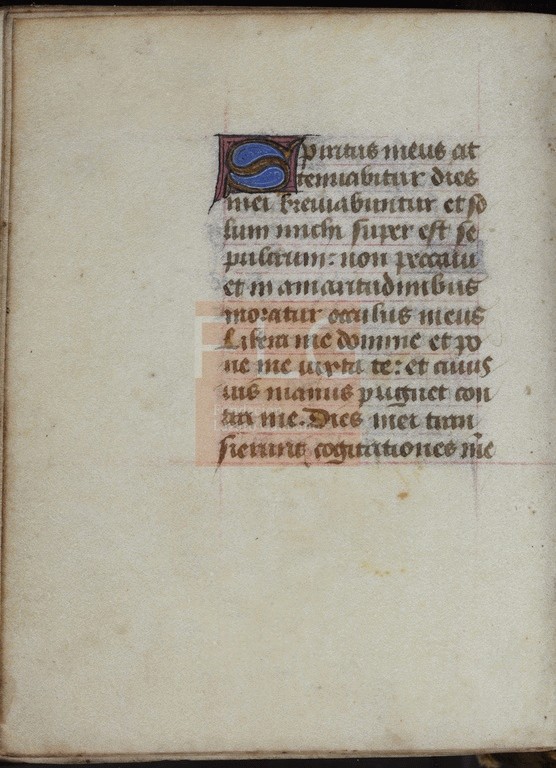 Spiritus meus at
tenuabitur dies
mei breviabuntur et so
lum michi super est se
pulcrum: non peccavi
et in amaritudinibus
moratur occulus meus
Libera me domine et po
ne me iuxta te: et cuius
vis manus pugnet con
tra me. Dies mei tran
sierunt cogitationes me